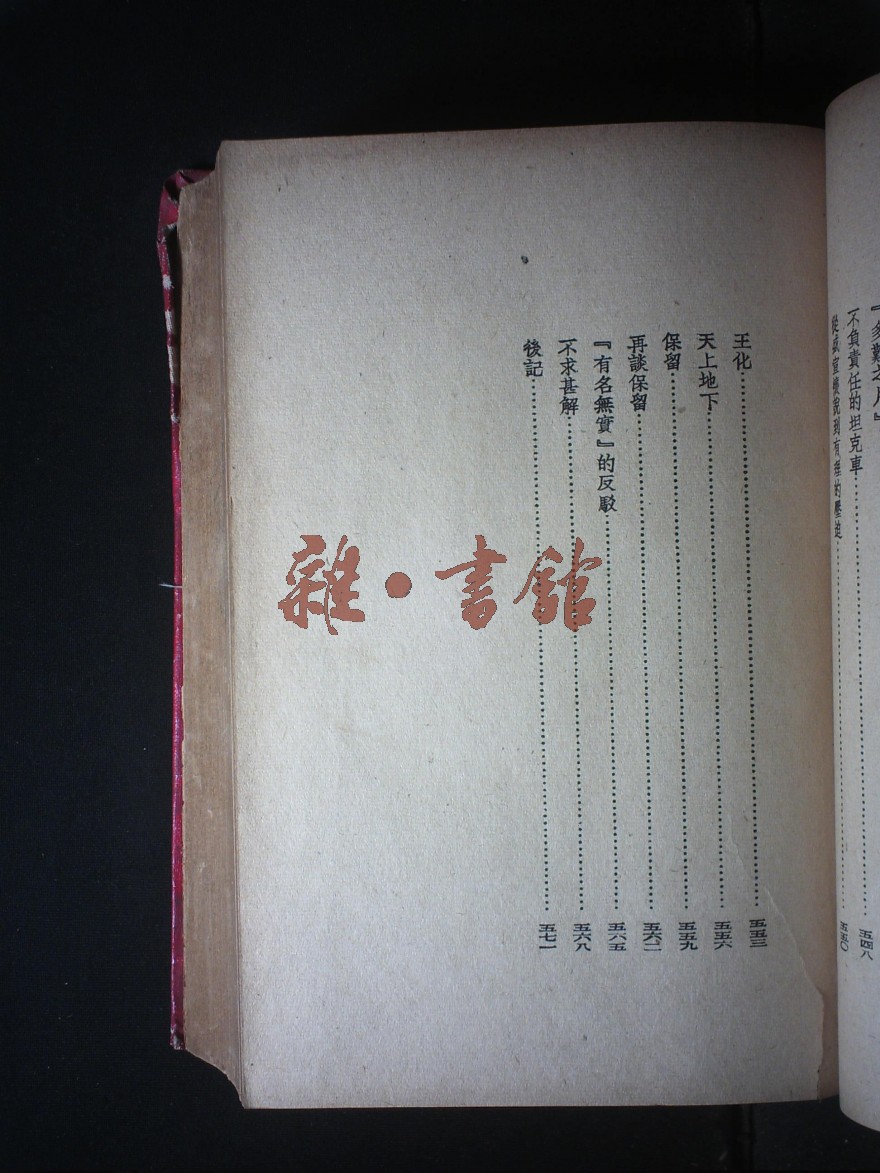 『多難之月』
不負責任的坦克車……五四八
從盛宣懷說到有理的壓迫……五五〇
王化……五五三
天上地下……五五六
保留……五五九
再談保留……五六二
『有名無實』的反駁……五六五
不求甚解……五六八
後記……五七一
雜·書館